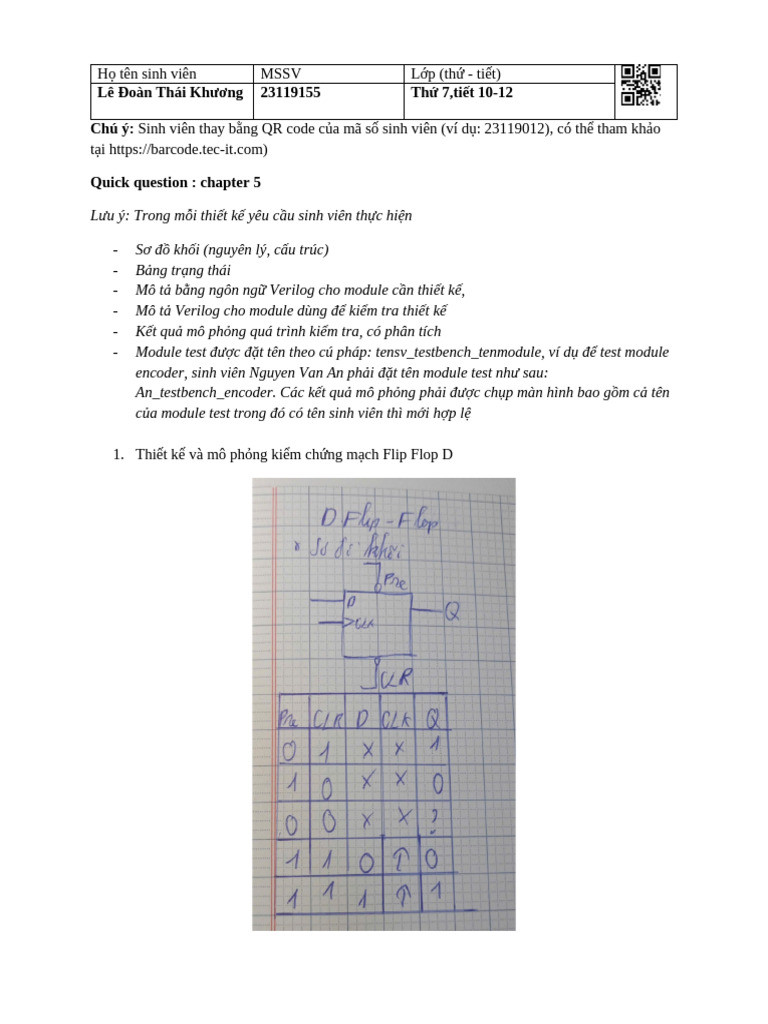 Họ tên sinh viên MSSV Lớp (thứ - tiết)
Lê Đoàn Thái Khương 23119155 Thứ 7,tiết 10-12
Chú ý: Sinh viên thay bằng QR code của mã số sinh viên (ví dụ: 23119012), có thể tham khảo
tại https://barcode.tec-it.com)
Quick question : chapter 5
Lưu ý: Trong mỗi thiết kế yêu cầu sinh viên thực hiện
- Sơ đồ khối (nguyên lý, cấu trúc)
- Bảng trạng thái
- Mô tả bằng ngôn ngữ Verilog cho module cần thiết kế,
- Mô tả Verilog cho module dùng để kiểm tra thiết kế
- Kết quả mô phỏng quá trình kiểm tra, có phân tích
- Module test được đặt tên theo cú pháp: tensv_testbench_tenmodule, ví dụ để test module
encoder, sinh viên Nguyen Van An phải đặt tên module test như sau:
An_testbench_encoder. Các kết quả mô phỏng phải được chụp màn hình bao gồm cả tên
của module test trong đó có tên sinh viên thì mới hợp lệ
1. Thiết kế và mô phỏng kiểm chứng mạch Flip Flop D
D Flip - Flop
* Sơ đồ khối
Pre
D
CLK
Q
CLR
Pre CLR D CLK Q
0 1 x x 1
1 0 x x 0
0 0 x x ?
1 1 0 ↑ 0
1 1 1 ↑ 1